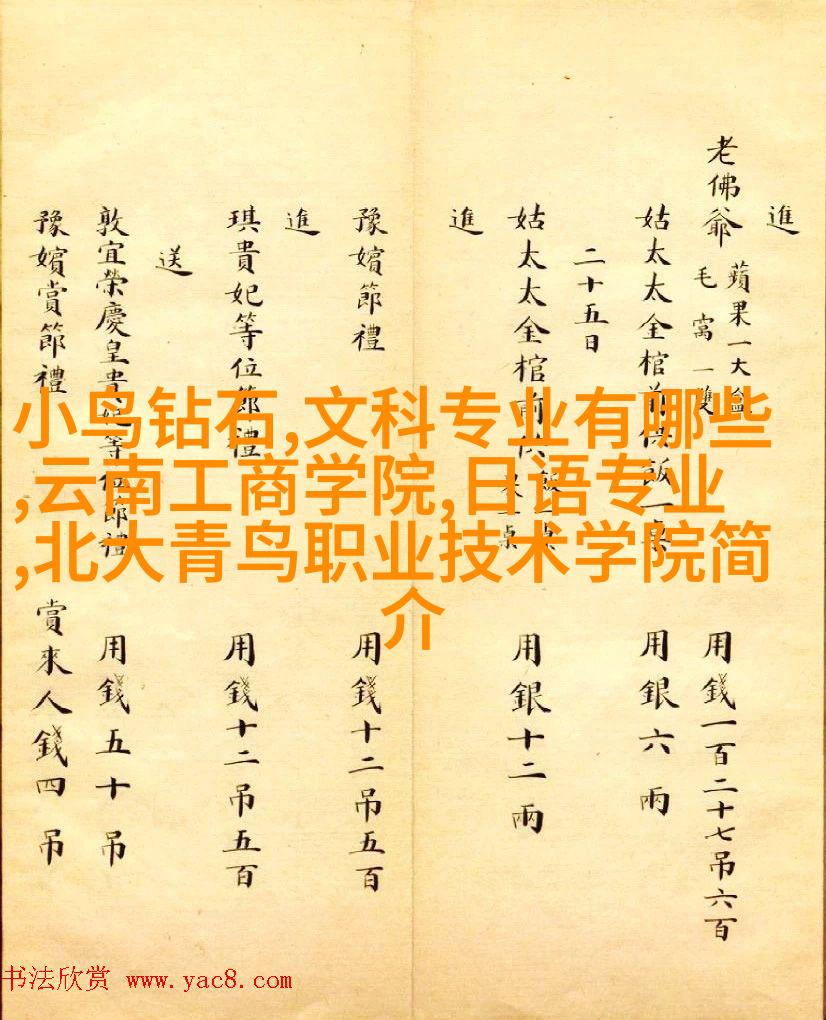 進
老佛爺 蘋果一大盒 毛窩一雙 用錢一百二十七吊六百
姑太太金棺前供飯一桌 用銀六兩
二十五日
姑太太金棺前供 一桌 用銀十二兩
進
豫嬪節禮 用錢十二吊五百
進
琪貴妃等位節禮 用錢十二吊五百
送
敦宜榮慶皇貴妃等位節禮 用錢五十吊
豫嬪賞節禮 賞來人錢四吊
小鸟钻石,文科专业有哪些
,云南工商学院,日语专业
,北大青鸟职业技术学院简
介
书法欣赏 www.yac8.com